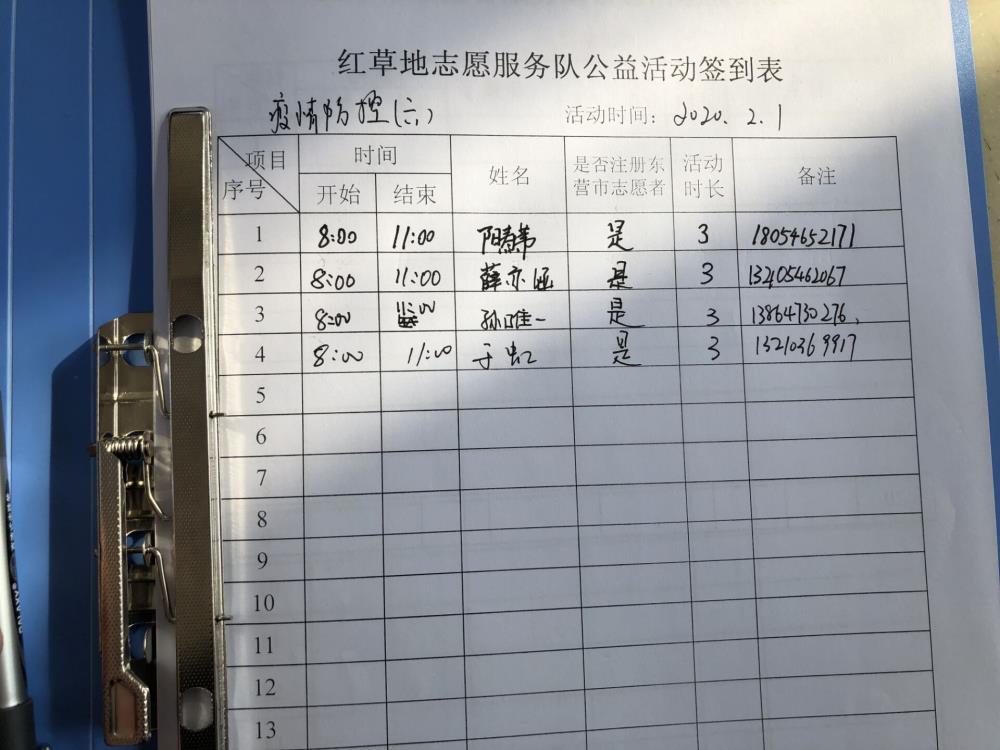 红草地志愿服务队公益活动签到表
疫情防控(六) 活动时间: 2020.2.1
项目 序号 时间 姓名 是否注册东营市志愿者 活动时长 备注
开始 结束
1 8:00 11:00 是 3 18054652171
2 8:00 11:00 薛亦涵 是 3 13205462067
3 8:00 11:00 孙唯一 是 3 13864730276.
4 8:00 11:00 于虹 是 3 13210369917
5
6
7
8
9
10
11
12
13